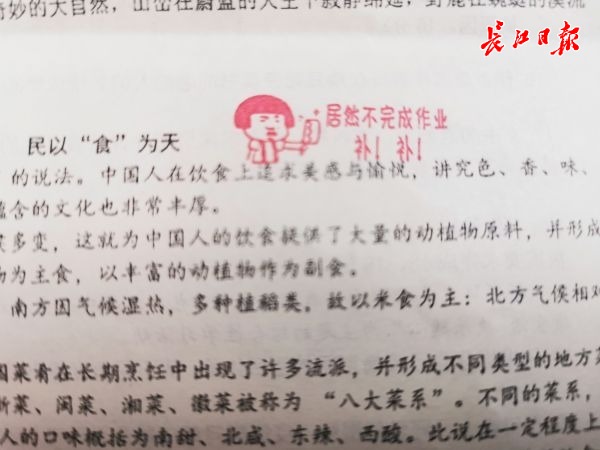 奇妙的大自然，山峦在蔚蓝的天空下寂静绵延，野鹿在蜿蜒的溪流
长江日报
居然不完成作业
补！补！
民以“食”为天
”的说法。中国人在饮食上追求美感与愉悦，讲究色、香、味、
蕴含的文化也非常丰厚。
候多变，这就为中国人的饮食提供了大量的动植物原料，并形成
物为主食，以丰富的动植物作为副食。
南方因气候湿热，多种植稻类，故以米食为主；北方气候相对
国菜肴在长期烹饪中出现了许多流派，并形成不同类型的地方菜
浙菜、闽菜、湘菜、徽菜被称为“八大菜系”。不同的菜系，
人的口味概括为南甜、北咸、东辣、西酸。此说在一定程度上